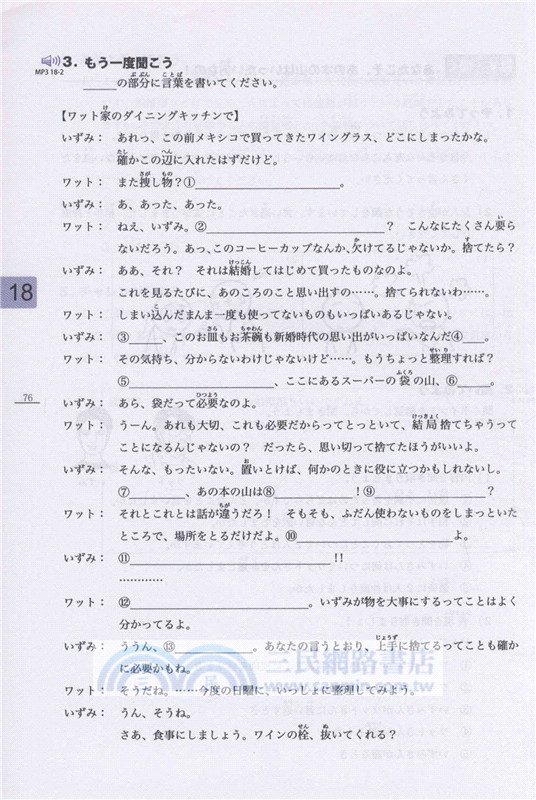 3. もう一度聞こう
MP3 18-2
＿＿＿の部分に言葉を書いてください。
【ワット家のダイニングキッチンで】
いずみ： あれっ、この前メキシコで買ってきたワイングラス、どこにしまったかな。
確かこの辺に入れたはずだけど。
ワット： また捜し物？①＿＿＿＿＿＿＿＿。
いずみ： あ、あった、あった。
ワット： ねえ、いずみ。②＿＿＿＿＿＿＿＿？ こんなにたくさん要ら
ないだろう。あっ、このコーヒーカップなんか、欠けてるじゃないか。捨てたら？
いずみ： ああ、それ？ それは結婚してはじめて買ったものなのよ。
これを見るたびに、あのころのこと思い出すの……。捨てられないわ……。
ワット： しまい込んだまんま一度も使ってないものもいっぱいあるじゃない。
いずみ： ③＿＿＿、このお皿もお茶碗も新婚時代の思い出がいっぱいなんだ④＿＿＿。
ワット： その気持ち、分からないわけじゃないけど……。もうちょっと整理すれば？
⑤＿＿＿＿＿＿、ここにあるスーパーの袋の山、⑥＿＿＿。
いずみ： あら、袋だって必要なのよ。
ワット： うーん。あれも大切、これも必要だからってとっといて、結局捨てちゃうって
ことになるんじゃないの？ だったら、思い切って捨てたほうがいいよ。
いずみ： そんな、もったいない。置いとけば、何かのときに役に立つかもしれないし。
⑦＿＿＿＿、あの本の山は⑧＿＿＿＿＿＿！⑨＿＿＿＿＿＿？
ワット： それとこれとは話が違うだろ！ そもそも、ふだん使わないものをしまっといた
ところで、場所をとるだけだよ。⑩＿＿＿＿＿＿＿＿よ。
いずみ： ⑪＿＿＿＿＿＿＿＿!!
…………
ワット： ⑫＿＿＿＿＿＿＿＿。いずみが物を大事にするってことはよく
分かってるよ。
いずみ： ううん、⑬＿＿＿＿＿＿。あなたの言うとおり、上手に捨てるってことも確か
に必要かもね。
ワット： そうだね。……今度の日曜に、いっしょに整理してみよう。
いずみ： うん、そうね。
さあ、食事にしましょう。ワインの栓、抜いてくれる？
18
76
三民網路書店
www.sanmin.com.tw